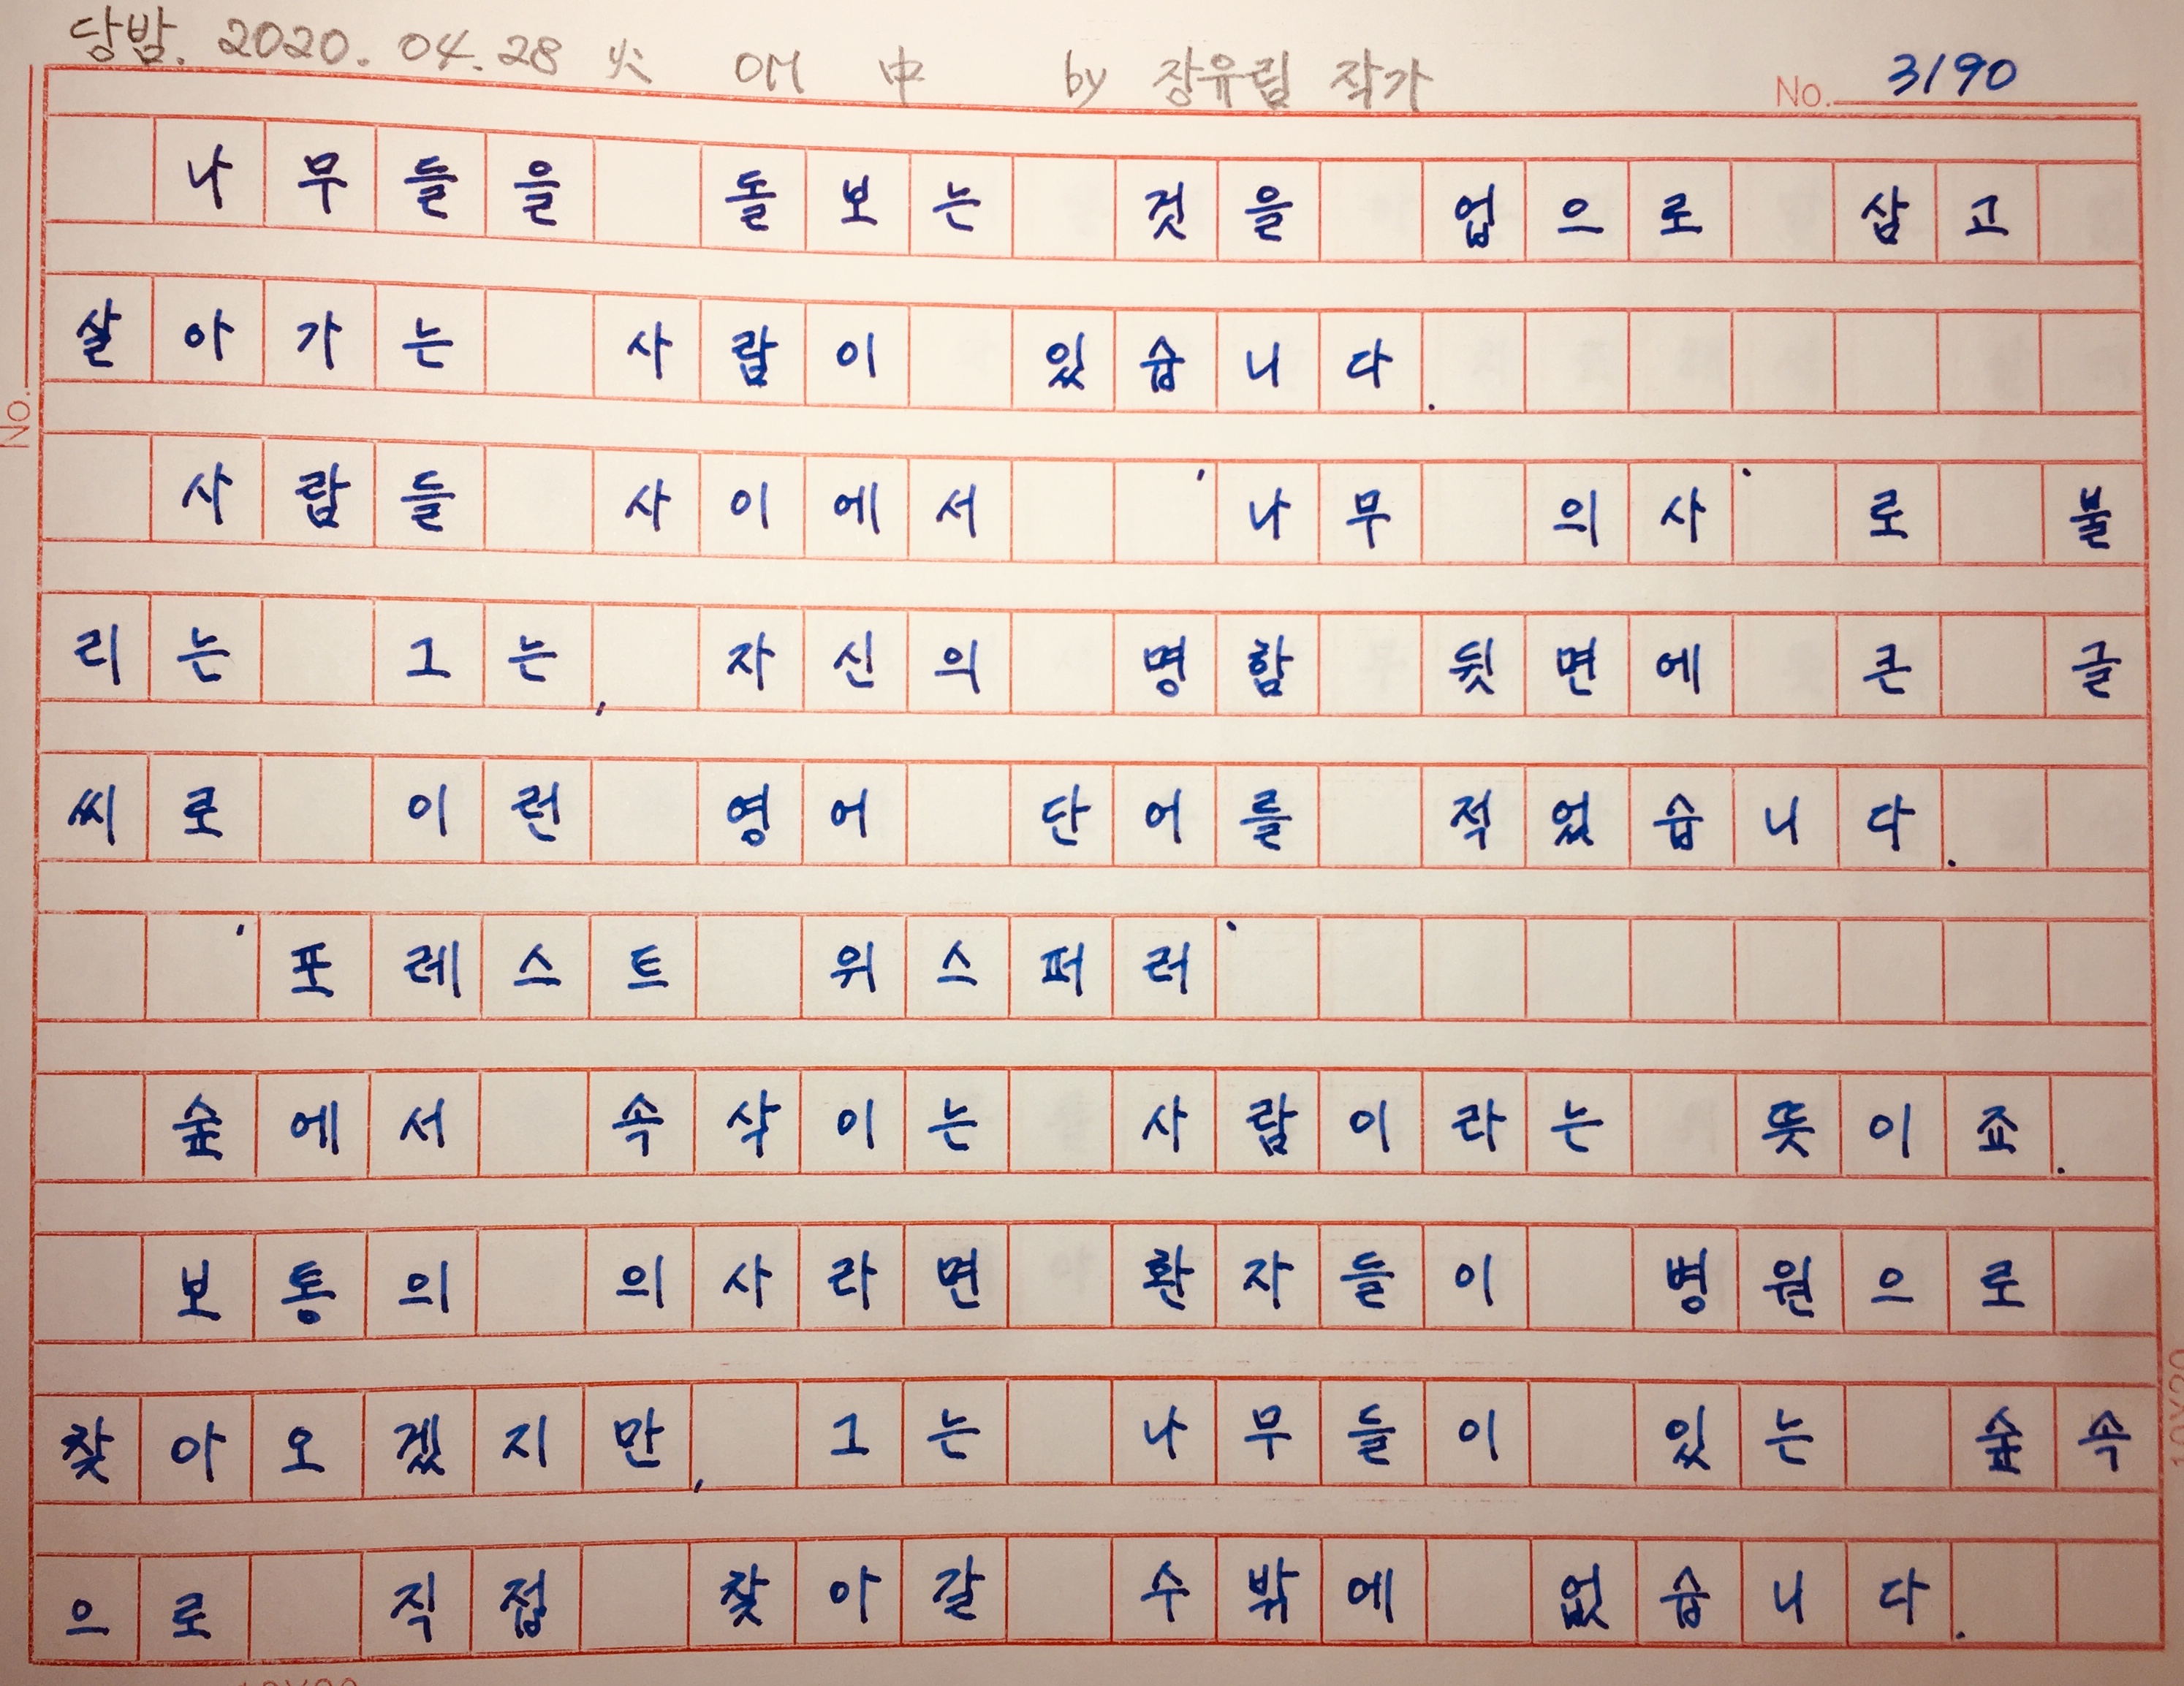 당밤. 2020. 04. 28 火 OM 中 by 장유림 작가
No. 3190
나무들을 돌보는 것을 업으로 삼고
살아가는 사람이 있습니다.
사람들 사이에서 '나무 의사'로 불
리는 그는, 자신의 명함 뒷면에 큰 글
씨로 이런 영어 단어를 적었습니다.
'포레스트 위스퍼러'
숲에서 속삭이는 사람이라는 뜻이죠.
보통의 의사라면 환자들이 병원으로
찾아오겠지만, 그는 나무들이 있는 숲속
으로 직접 찾아갈 수밖에 없습니다.
No.